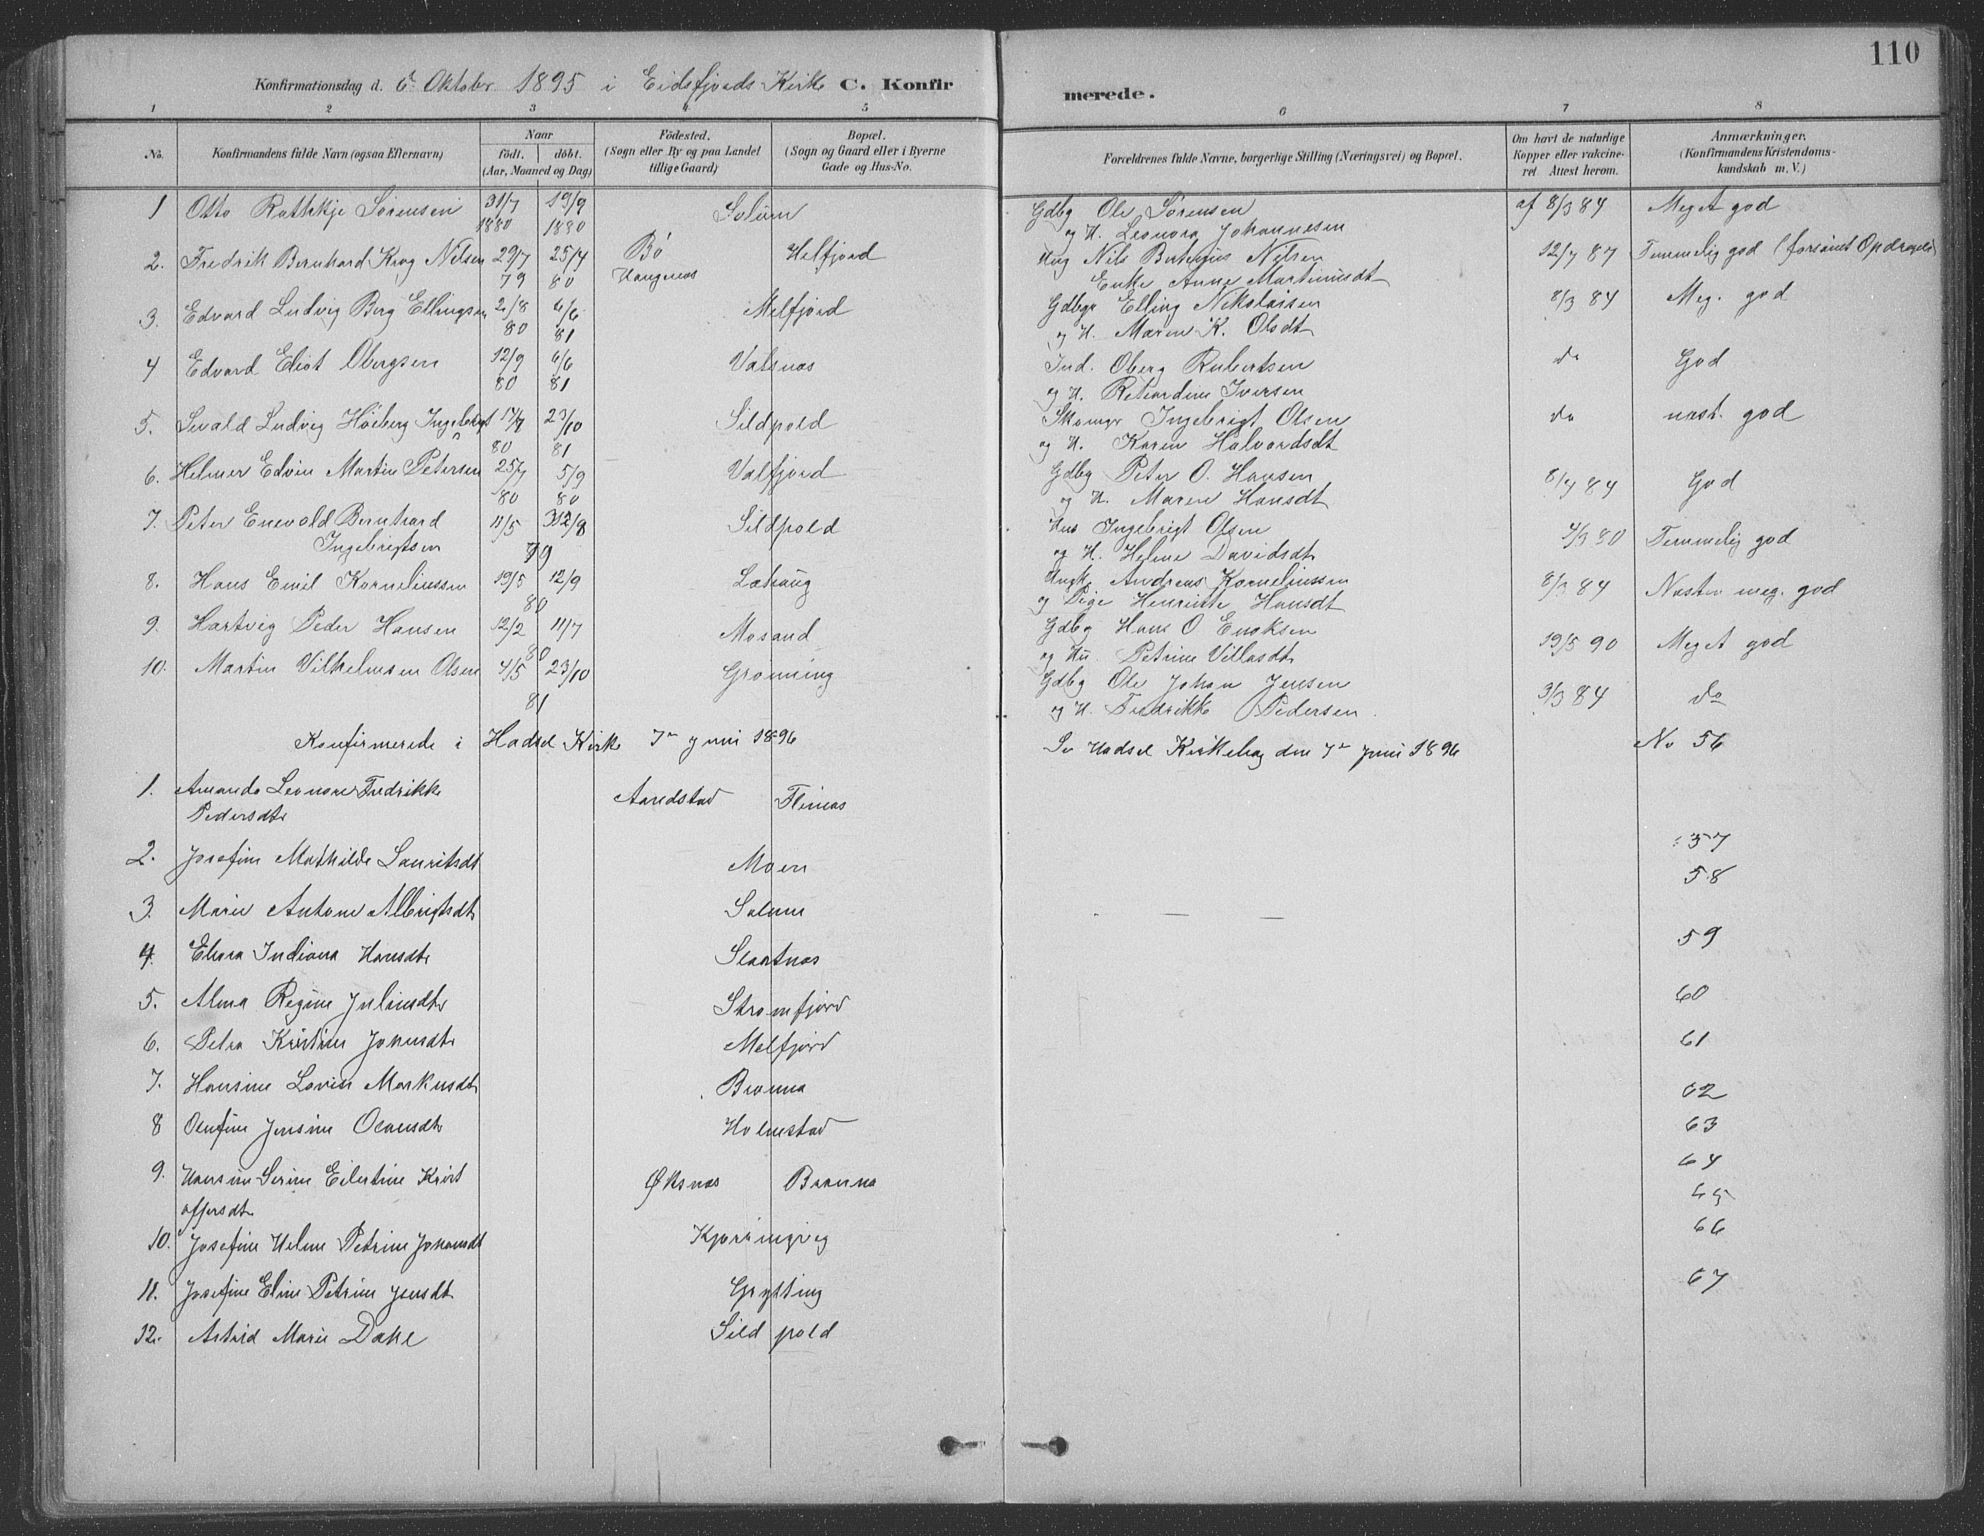 110
Konfirmationsdag d. 6te Oktober 1895 i Eidsfjords Kirke C. Konfirmerede.
1 2 3 4 5 6 7 8
No. Konfirmandens fulde Navn (ogsaa Efternavn) Naar födt. döbt. (Aar, Maaned og Dag) Födested. (Sogn eller By og paa Landet tillige Gaard) Bopæl. (Sogn og Gaard eller i Byerne Gade og Hus-No. Forældrenes fulde Navne, borgerlige Stilling (Næringsvei) og Bopæl. Om havt de naturlige Kopper eller vakcineret. Attest herom. Anmærkninger. (Konfirmandens Kristendomskundskab m. V.)
1 Otto Rathkje Sörensen 31/7 1880 19/9 1880 Solum Gdbg Ole Sörensen af 8/3 84 Meget god
og H. Leonora Johannesen
2. Fredrik Bernhard Krog Nilsen 29/7 79 25/4 80 Bö Melfjord Nils Nilsen 12/7 87 Temmelig god
Enke Anne Martinusdt
3. Edvard Ludvig Berg Ellingsen 2/8 80 6/6 81 Melfjord Gdbgr Elling Nikolaisen 8/3 84 Meg. god
og H. Maren K. Olsdt
4 Edvard Eliot Obergsen 12/9 80 6/6 81 Valsnæs Ind. Oberg Rubertsen do God
og H. Iversen
5. Sevald Ludvig Höeberg Ingebrigt 17/7 80 23/10 81 Sildpold Ingebrigt Olsen do næst. god
og H. Karen Halvordsdt
6. Helmer Edvin Martin Petersen 25/7 80 5/9 80 Valfjord Gdbg Peter O. Hansen 8/7 84 God
og H. Maren Hansdt
7. Peter Enevold Bernhard Ingebrigtsen 11/5 79 Sildpold Hus Ingebrigt Olsen 4/3 80 Temmelig god
og H. Helene Davidsdt
8. Hans Emil Korneliussen 19/5 12/9 80 Lahaug Ungk. Andreas Korneliussen 8/3 84 Næsten meg. god
og Pige Henrikke Hansdt
9. Hartvig Peder Hansen 12/2 11/7 80 Mosand Gdbg Hans O Enoksen 19/5 90 Meget god
og Hu. Petrine Villasdt
10. Martin Vilhelmsen Olsen 4/5 23/10 81 Grönning Gdbg Ole Johan Jensen 3/3 84 do
og H. Fredrikke Pedersen
Konfirmerede i Hadsel Kirke 7de Juni 1896 Se Hadsel Kirkebog den 7de Juni 1896 No 56
1. Amanda Leonore Fredrikke Aaredstad Flinæs
Pedersdt
2. Josefine Mathilde Lauritsdt Moen 57
58
3. Marie Antone Albrigtsdt Solum
4. Ehara Indiana Hansdt Slaatnæs 59
5. Alma Regine Juliusdt Strömfjord 60
6. Petra Kristine Johansdt Melfjord 61
7. Hansine Lovise Markusdt Brönna 62
8 Olufine Jensine Olausdt Holmstad 63
9. Hansine Serine Eilertine Krist Øksnæs Brönna 64
offersdt 65
10. Josefine Helene Petrine Johansdt Kjörringvig 66
11. Josefine Eline Petrine Jensdt Grytting 67
12. Astrid Marie Dahl Sildpold